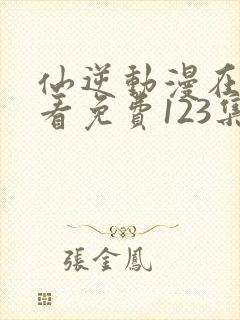 仙逆動漫在
看免費123集
張金鳳